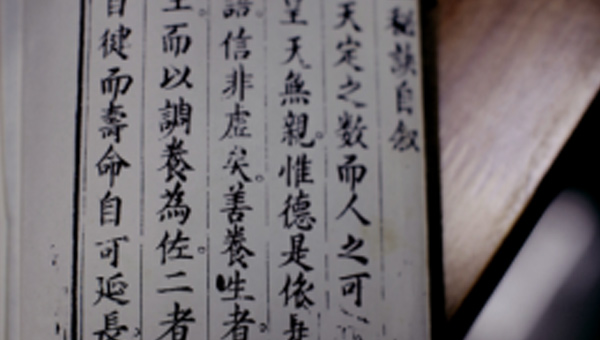 秘訣自叙
天定之数而人之可
皇天無親。惟德是依
語信非虛矣。善養生者。
主而以調養為佐。二者
自徤而壽命自可延長。